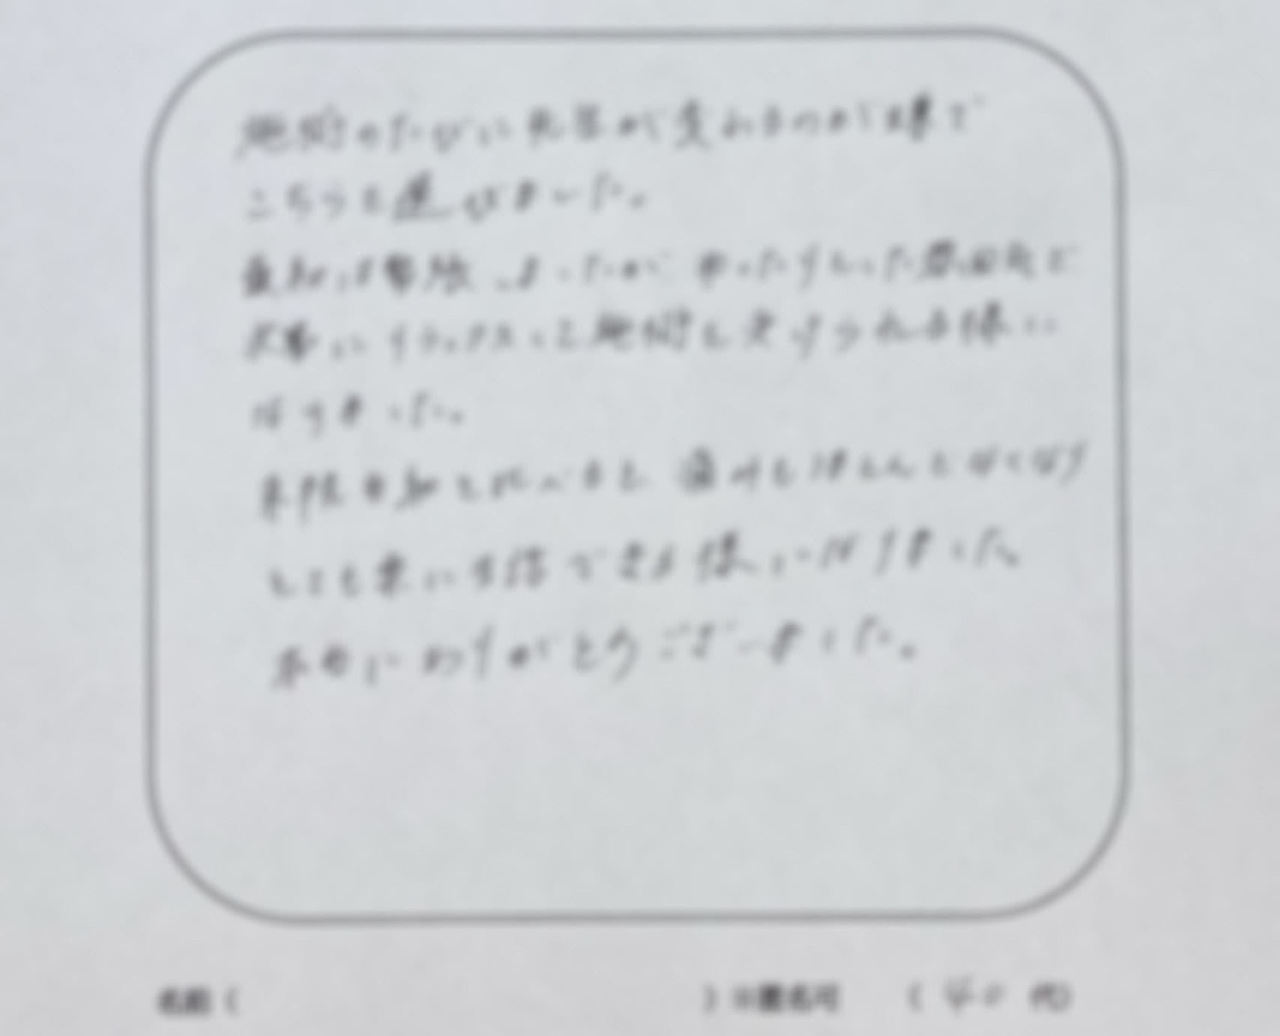 施術のたびに先生が変わるのが嫌で
こちらを選びました。
最初は緊張しましたが ゆったりとした雰囲気で
次第にリラックスして施術を受けられる様に
なりました。
来院当初と比べると 痛みもほとんどなくなり
とても楽に生活できる様になりました。
本当にありがとうございました。
名前（ ）※匿名可 （ 40 代）